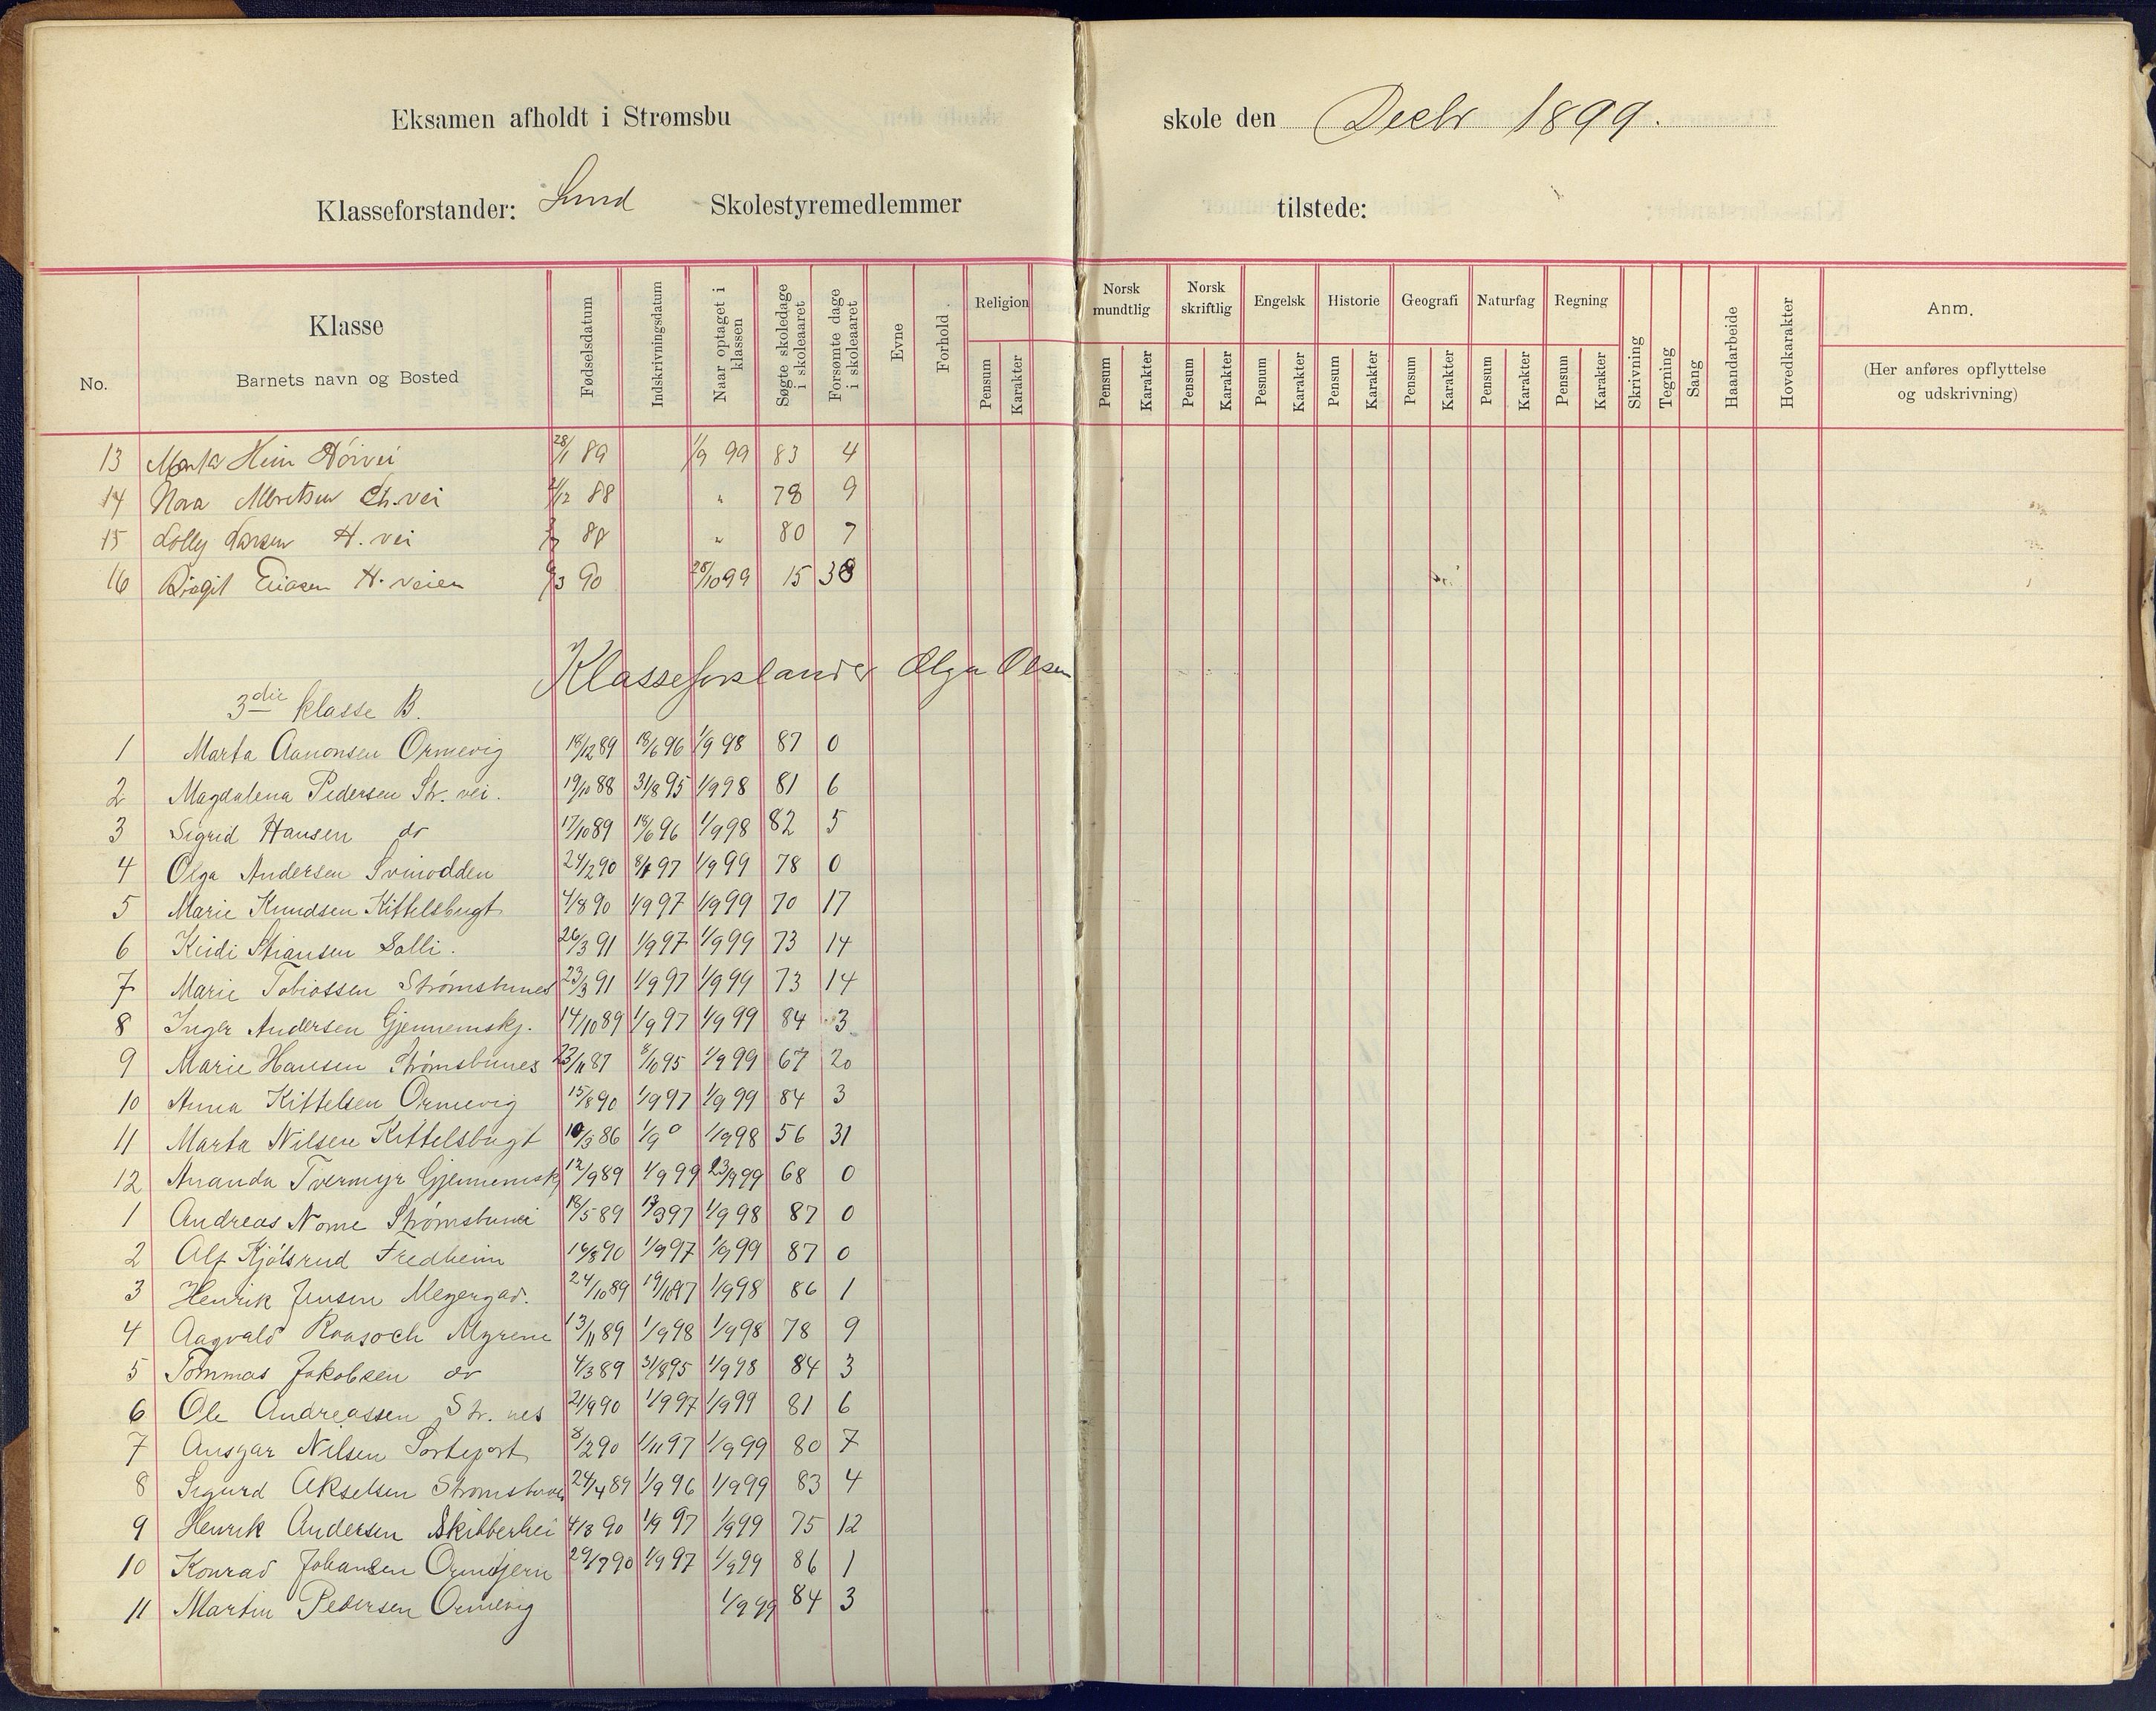 Eksamen afholdt i Strømsbu skole den Decbr 1899.
Klasseforstander: Lund Skolestyremedlemmer tilstede:
No.
Klasse
Barnets navn og Bosted
Fødselsdatum
Indskrivningsdatum
Naar optaget i klassen
Søgte skoledage i skoleaaret
Forsømte dage i skoleaaret
Evne
Forhold
Religion
Pensum Karakter
Norsk mundtlig
Pensum Karakter
Norsk skriftlig
Pensum Karakter
Engelsk
Pesnum Karakter
Historie
Pensum Karakter
Geografi
Pensum Karakter
Naturfag
Pensum Karakter
Regning
Pensum Karakter
Skrivning
Tegning
Sang
Haandarbeide
Hovedkarakter
Anm.
(Her anføres opflyttelse
og udskrivning)
13 Heim 28/1 89 1/9 99 83 4
14 Nora Albretsen Ch. vei 88 " 78 9
15 Lolly Larsen H. vei " 80 7
16 Birgit H. veien 90 28/10 99 15 38
Klasseforstander Olga Olsen
3die klasse B.
1 Marta Aanonsen Ormevig 18/12 89 18/6 96 1/9 98 87 0
2 Magdalena Pedersen Str. vei. 19/10 88 31/8 95 1/9 98 81 6
3 Sigrid Hansen do 17/10 89 18/6 96 1/9 98 82 5
4 Olga Andersen Svinodden 24/2 90 97 1/9 99 78 0
5 Marie Knudsen Kittelsbugt 4/8 90 1/9 97 1/9 99 70 17
6 Stiansen Solli. 26/3 91 1/9 97 1/9 99 73 14
7 Marie Tobiassen Strømsbunes 23/3 91 1/9 97 1/9 99 73 14
8 Inger Andersen Gjennemskj. 14/10 89 1/9 97 1/9 99 84 3
9 Marie Hansen Strømsbunes 23/11 87 95 1/9 99 67 20
10 Anna Kittelsen Ormevig 15/8 90 1/9 97 1/9 99 84 3
11 Marta Nilsen Kittelsbugt 86 1/9 0 1/9 98 56 31
12 Ananda Tvermyr Gjennemskj 12/9 89 1/9 99 23/9 99 68 0
1 Andreas Nome Strømsbuvei 18/5 89 97 1/9 98 87 0
2 Alf Kjølsrud Fredheim 90 1/9 97 1/9 99 87 0
3 Henrik Jensen Meyergad. 24/10 89 97 1/9 98 86 1
4 Aagvald Roasoch Myrene 13/11 89 1/9 98 1/9 98 78 9
5 Tommas Jakobsen do 4/3 89 31/8 95 1/9 98 84 3
6 Ole Andreassen Str. nes 21/9 90 1/9 97 1/9 99 81 6
7 Ansgar Nilsen 8/2 90 1/11 97 1/9 99 80 7
8 Sigurd Akselsen 24/4 89 1/9 96 1/9 99 83 4
9 Henrik Andersen Skibberhei 4/3 90 1/9 97 1/9 99 75 12
10 Konrad Johansen Ormtjern 29/7 90 1/9 97 1/9 99 86 1
11 Martin Pedersen Ormevig 1/9 99 84 3